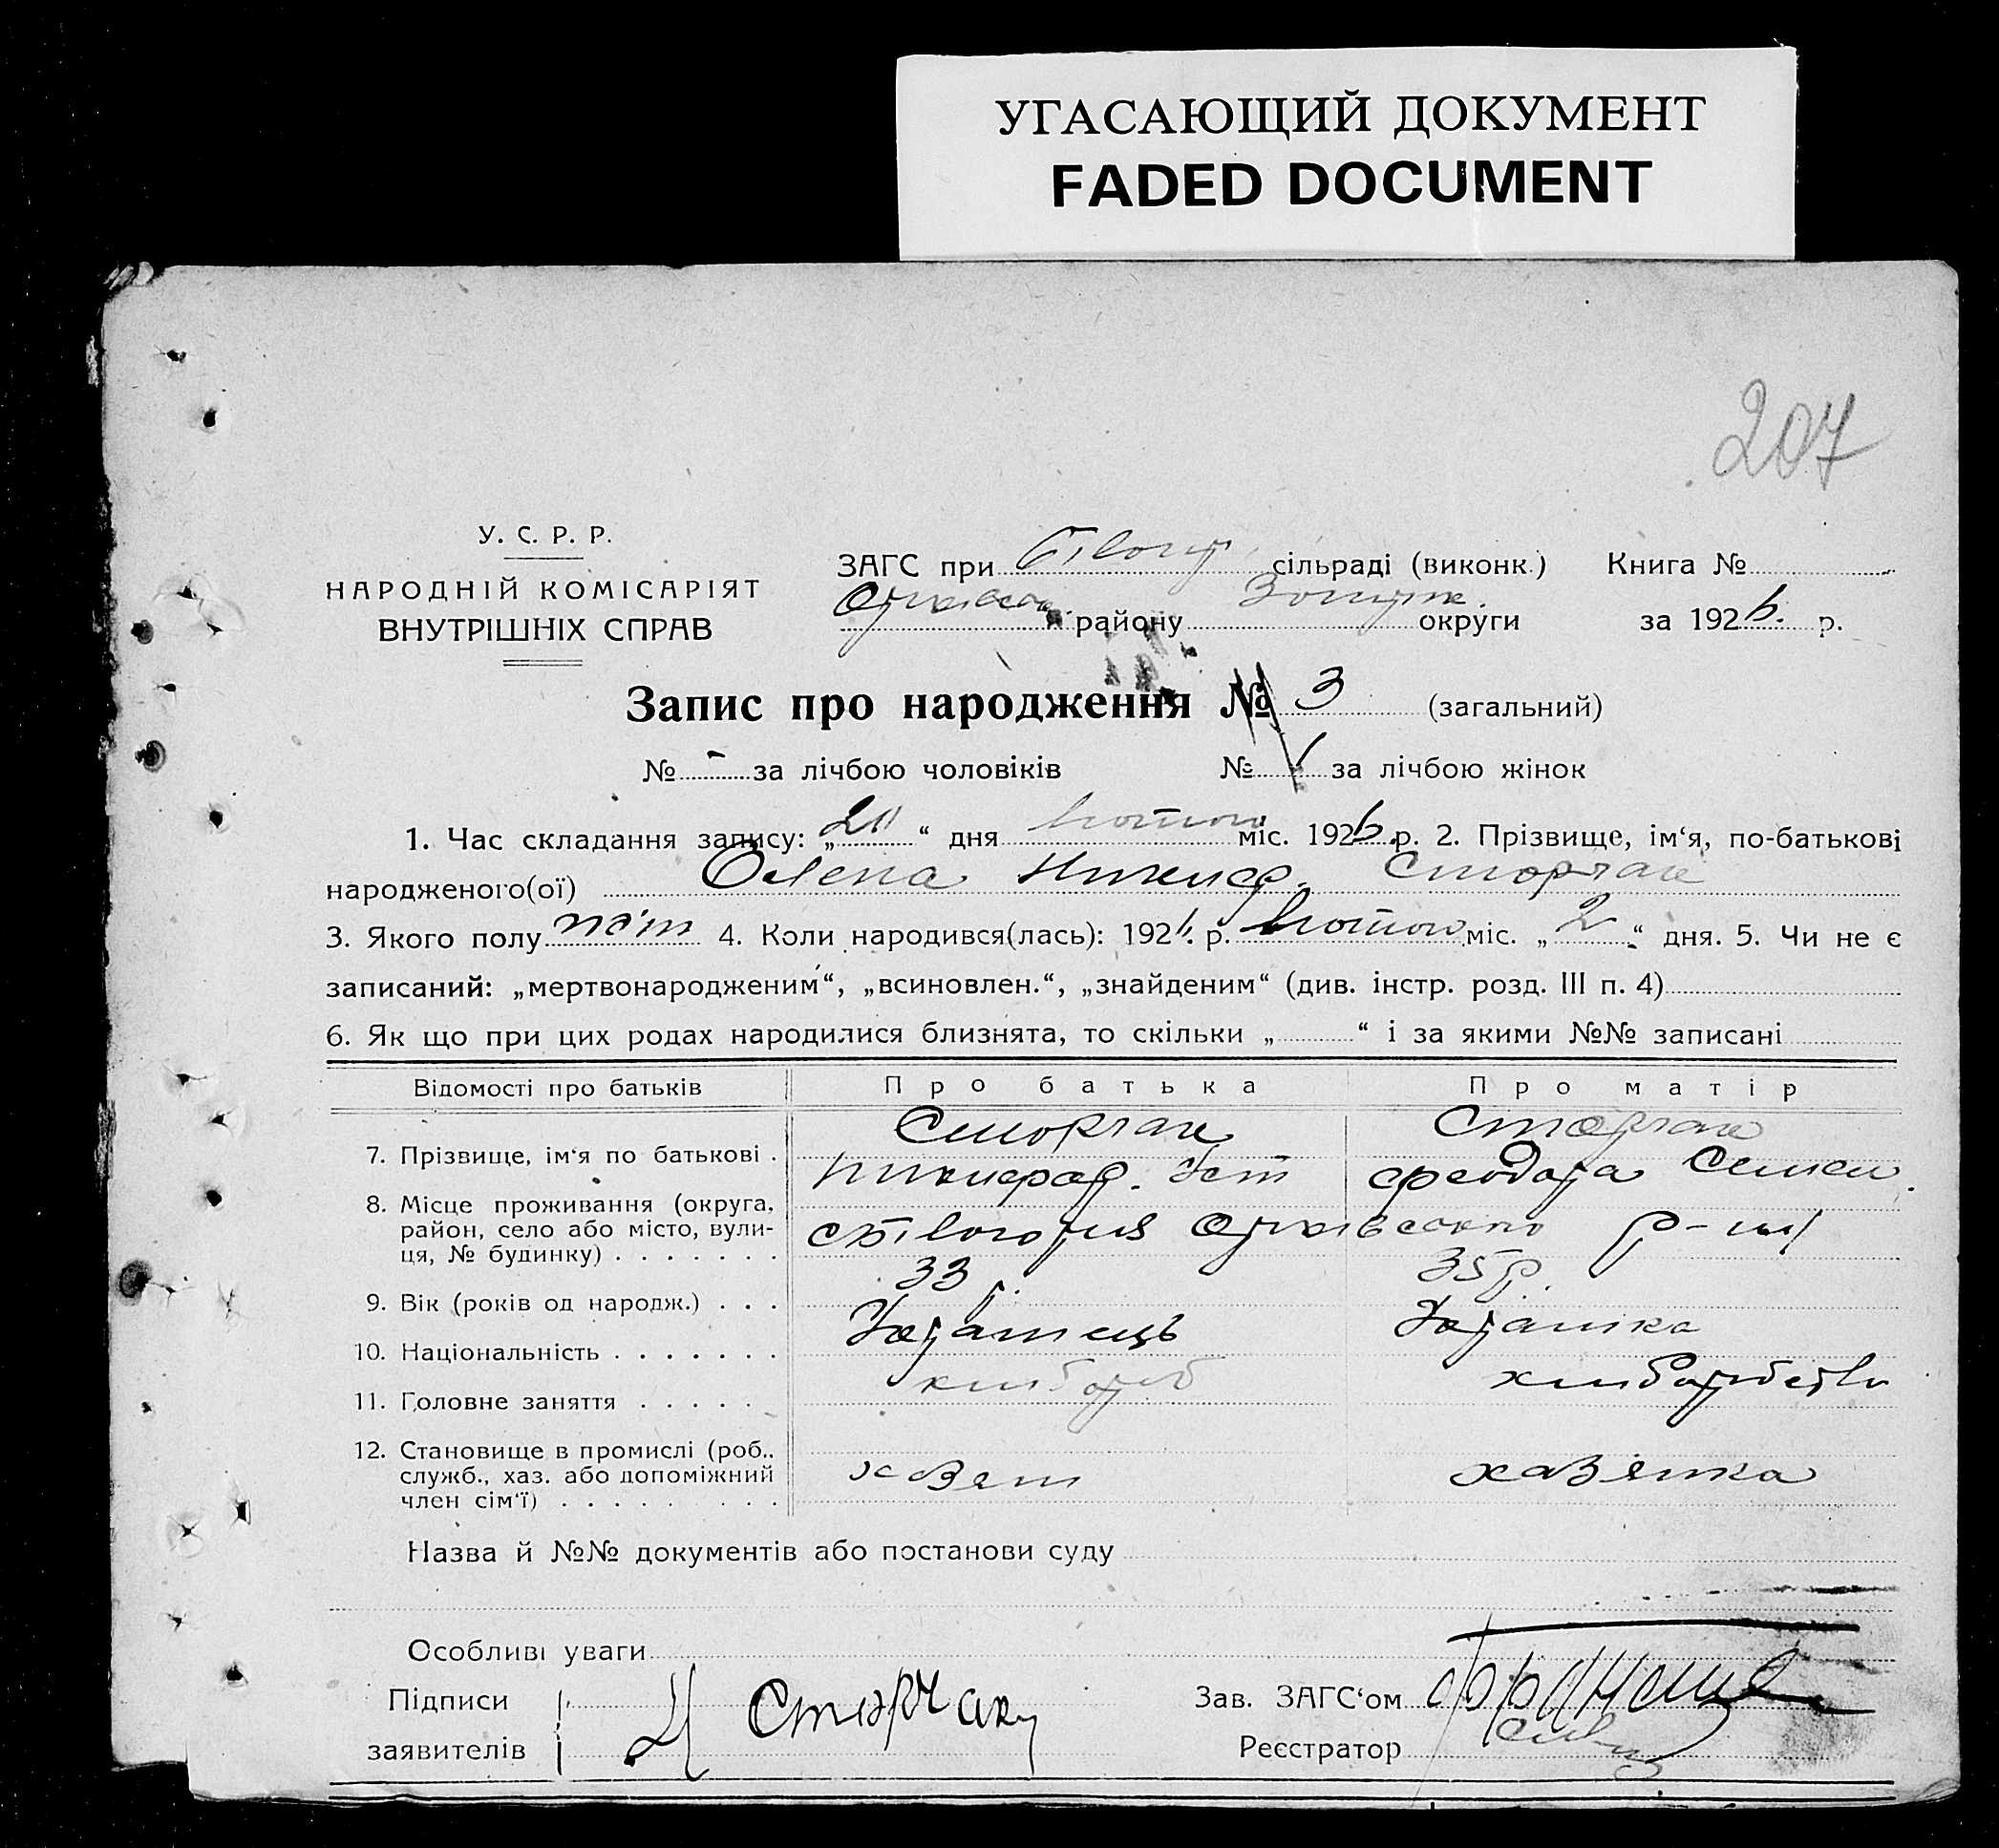 УГАСАЮЩИЙ ДОКУМЕНТ
FADED DOCUMENT
207
У. С. Р. Р.
НАРОДНІЙ КОМІСАРІЯТ
ВНУТРІШНІХ СПРАВ
ЗАГС при сільраді (виконк.) Книга №
району округи за 1926. р.
Запис про народження № 3 (загальний)
№ - за лічбою чоловіків № 1 за лічбою жінок
1. Час складання запису: „20“ дня лютого міс. 1926 р. 2. Прізвище, ім‘я, по-батькові
народженого(ої) Олена Никиф. Сторчак
3. Якого полу жін 4. Коли народився(лась): 1926. р. лютого міс. „2“ дня. 5. Чи не є
записаний: „мертвонародженим“, „всиновлен.“, „знайденим“ (див. інстр. розд. III п. 4)
6. Як що при цих родах народилися близнята, то скільки „ “ і за якими №№ записані
Відомості про батьків Про батька Про матір
7. Прізвище, ім‘я по батькові . Сторчак Сторчак
Никифор. Феодора Семен.
8. Місце проживання (округа,
район, село або місто, вули-
ця, № будинку) . . . . . . . р-ну
9. Вік (років од народж.) . . . 33 р. 35 р.
10. Національність . . . . . . . Українець Українка
11. Головне заняття . . . . . хлібороб хліборобство
12. Становище в промислі (роб..
служб., хаз. або допоміжний
член сім‘ї) . . . . . . . . хазяїн хазяйка
Назва й №№ документів або постанови суду
Особливі уваги
Підписи
заявителів Н Сторчак
Зав. ЗАГС‘ом
Реєстратор